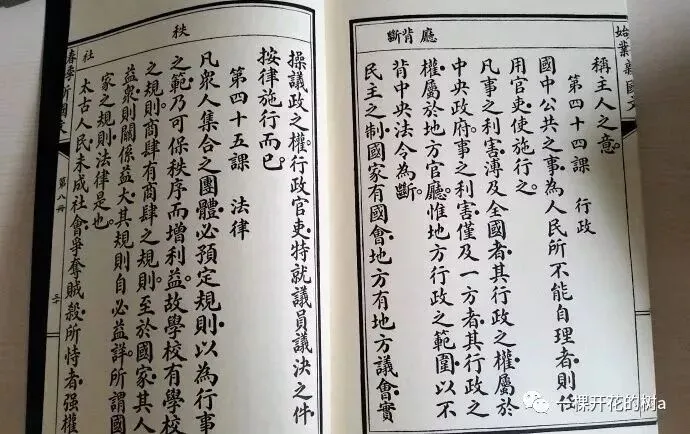 始業新國文
應背斷
稱主人之意。
第四十四課 行政
國中公共之事。為人民所不能自理者。則任
用官吏。使施行之。
凡事之利害。溥及全國者。其行政之權。屬於
中央政府。事之利害。僅及一方者。其行政之
權。屬於地方官廳。惟地方行政之範圍。以不
背中央法令為斷。
民主之制。國家有國會。地方有地方議會。實
秩
社
操議政之權。行政官吏。特就議員議決之件。
按律施行而已。
第四十五課 法律
凡衆人集合之團體。必預定規則。以為行事
之範。乃可保秩序而增利益。故學校有學校
之規則。商肆有商肆之規則。至於國家。其人
益衆。則關係益大。其規則自必益詳。所謂國
家之規則。法律是也。
太古人民。未成社會。爭奪賊殺。所恃者。強權
第八冊
一棵开花的树a